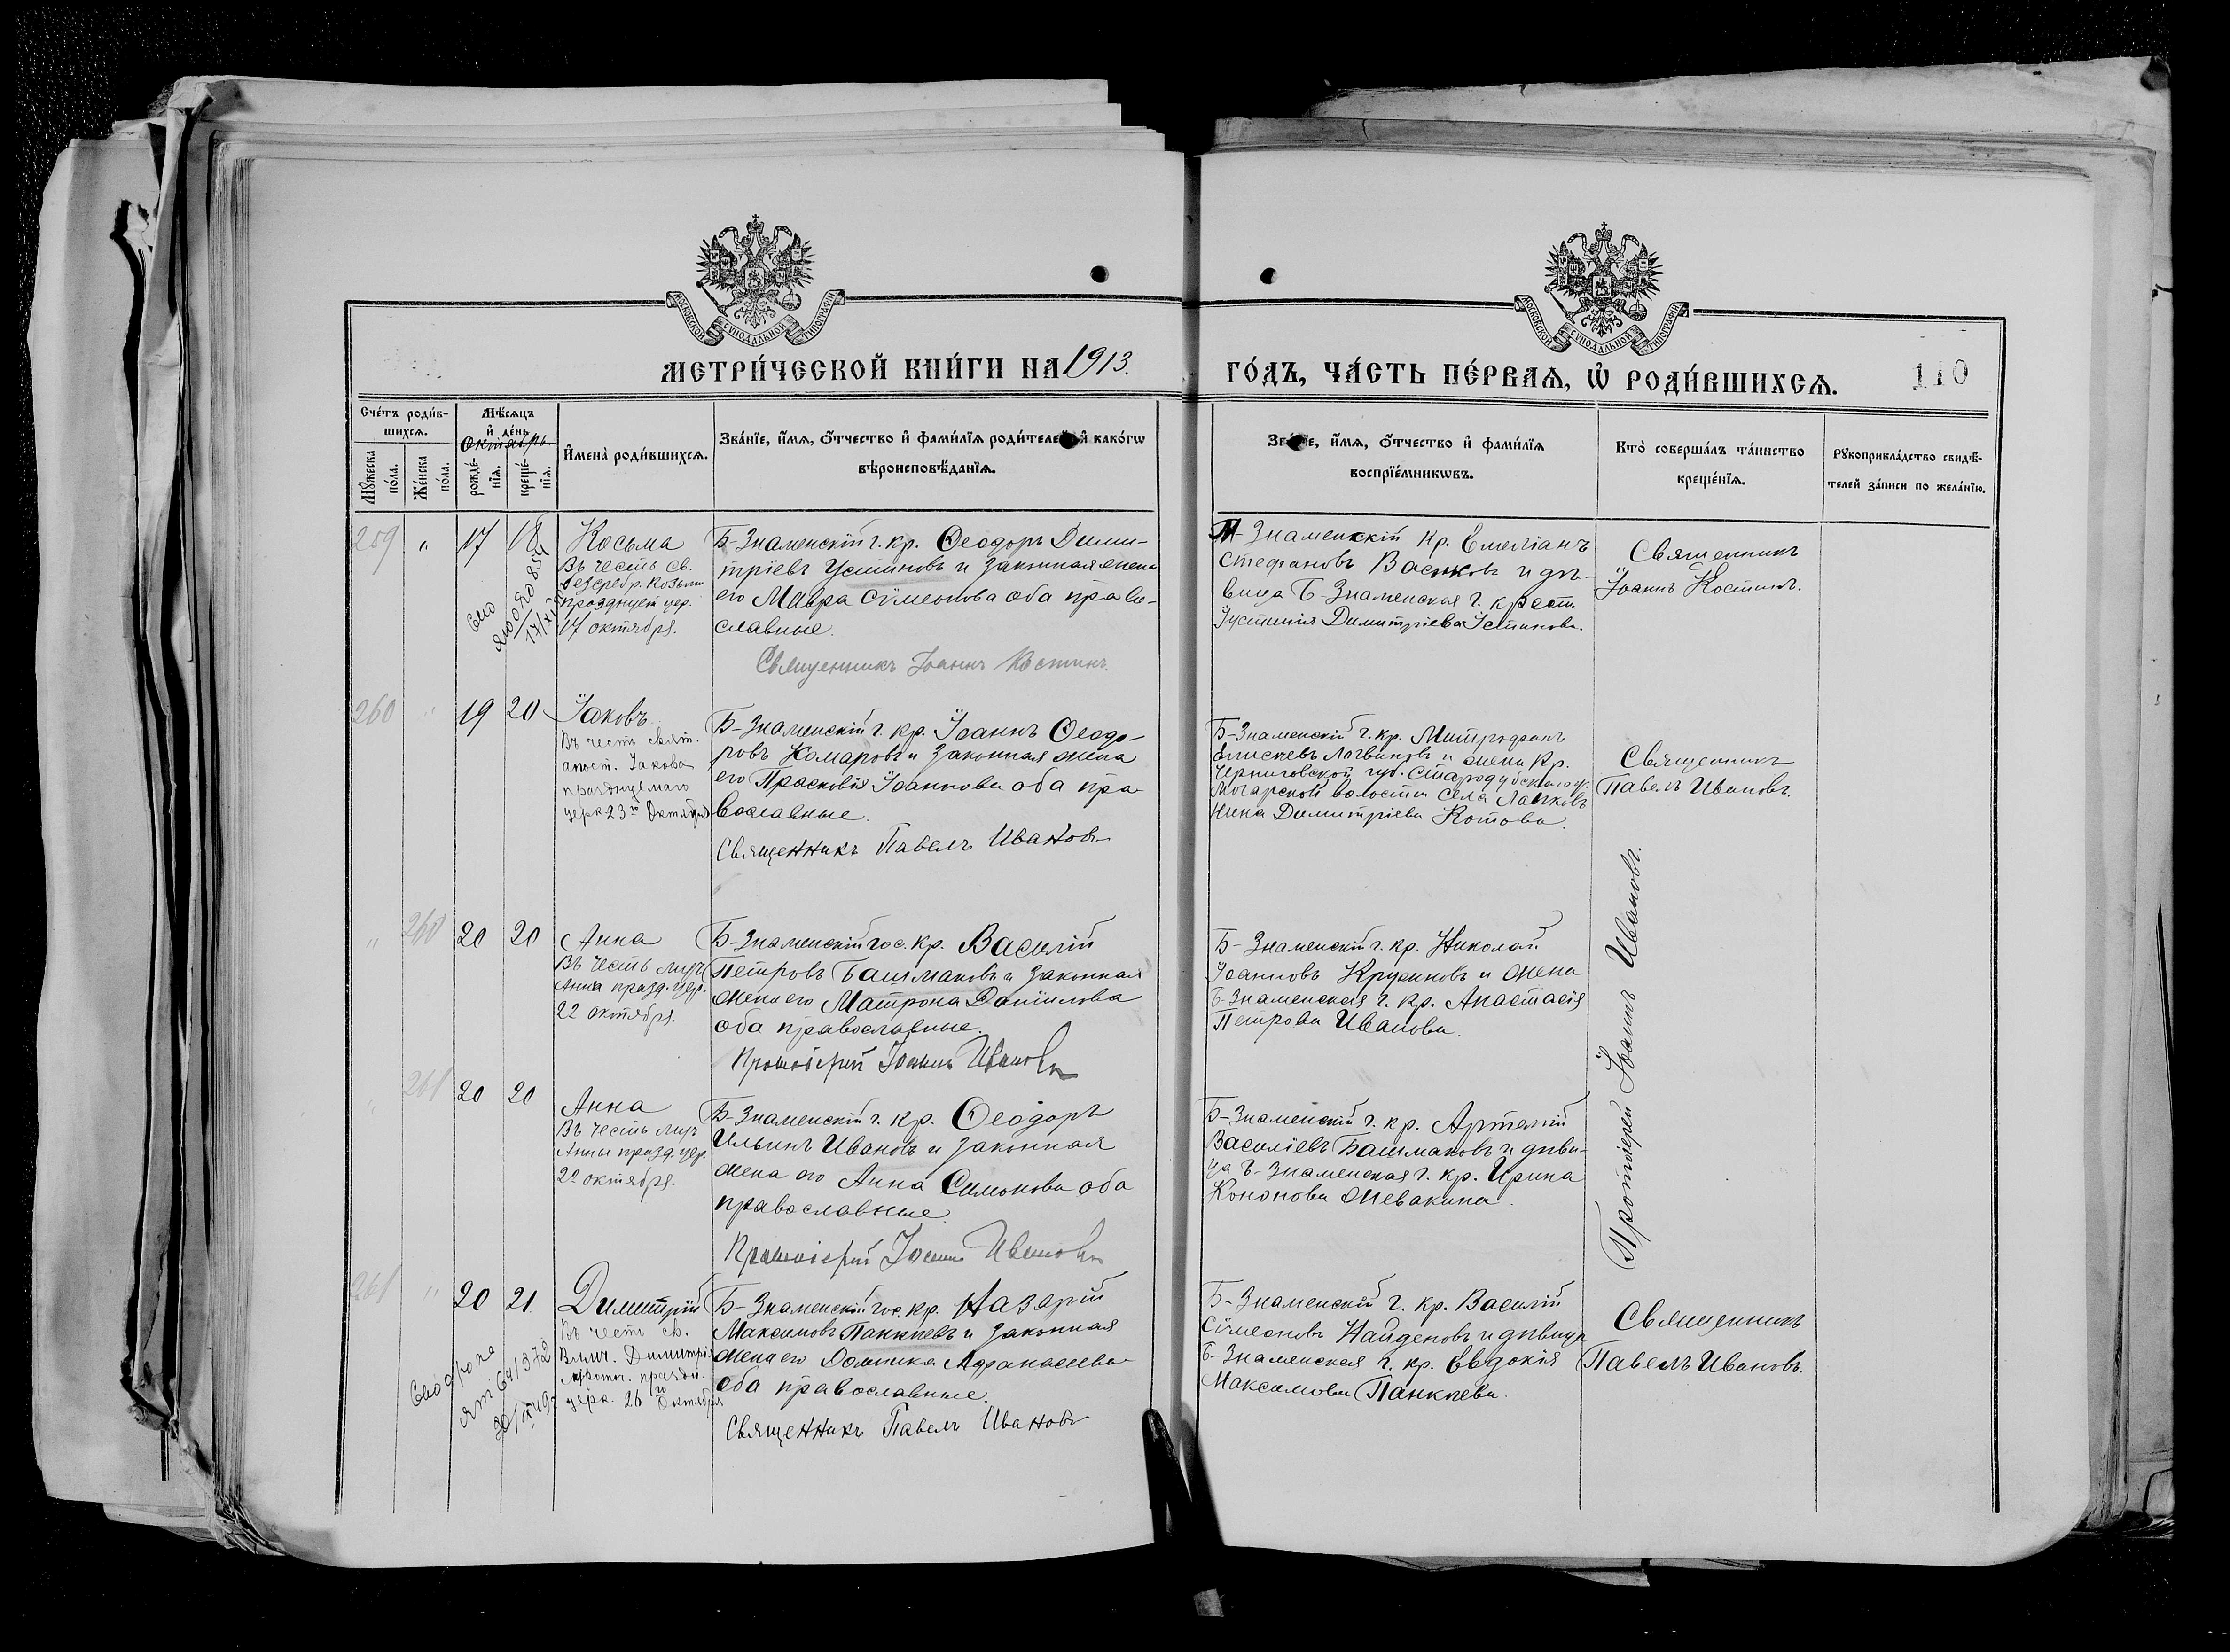 МОСКОВСКОЙ СѴНОДАЛЬНОЙ ТИПОГРАФІИ
МОСКОВСКОЙ СѴНОДАЛЬНОЙ ТИПОГРАФІИ
МЕТРИ́ЧЕСКОЙ КНИ́ГИ НА 1913.
ГО́ДЪ, ЧА́СТЬ ПЕ́РВАѦ, Ѡ҆ РОДИ́ВШИХСѦ.
110
Сче́тъ роди́в-
шихсѧ.
Мꙋжеска
по́ла.
Же́нска
по́ла.
Мѣ́сѧцъ
и҆ де́нь
Октябрь.
рожде́-
нїѧ.
креще́-
нїѧ.
И҆мена̀ роди́вшихсѧ.
Зва́нїе, и҆́мѧ, ѻ҆́тчество и҆ фами́лїѧ роди́телей и҆ како́гѡ
вѣроисповѣ́данїѧ.
Зва́нїе, и҆́мѧ, ѻ҆́тчество и҆ фами́лїѧ
воспрїе́мникѡвъ.
Кто̀ соверша́лъ та́инство
креще́нїѧ.
Рꙋкоприкла́дство свидѣ́-
телей за́писи по жела́нїю.
259 " 17 18
Косьма
Въ честь св.
безсребр. Козьмы
празднует цер.
17 октября.
Б-Знаменскій г. кр. Ѳеодоръ Дими-
тріевъ Устиновъ и законная жена
его Мавра Сѵмеонова оба право-
славные.
Священникъ Іоаннъ Костинъ.
Знаменскій кр. Емеліанъ
Стефановъ Васжковъ и дѣ-
вица Б-Знаменская г. крест.
Іустинія Димитріева Устинова.
Священникъ
Іоаннъ Костинъ.
260 " 19 20
Іаковъ
Въ честь свят.
апост. Іакова
празднуемаго
церк. 23го Октября
Б-Знаменскій г. кр. Іоаннъ Ѳеодо-
ровъ Комаровъ и законная жена
его Прасковія Іоаннова оба пра-
вославные.
Священникъ Павелъ Ивановъ
Б-Знаменскій г. кр. Митрофанъ
Елисеевъ Логвиновъ и жена кр.
Черниговской губ. Стародубскаго у.
волости села
Нина Димитріева Котова.
Священникъ
Павелъ Ивановъ.
" 260 20 20
Анна
Въ честь муч.
Анны празд. цер.
22 октября.
Б-Знаменскій гос. кр. Василій
Петровъ Башмаковъ и законная
жена его Матрона Даніилова
оба православные.
Протоіерей Іоаннъ Ивановъ
Б-Знаменскій г. кр. Николай
Іоанновъ Кружковъ и жена
Б-Знаменская г. кр. Анастасія
Петрова Иванова.
Протоіерей Іоаннъ Ивановъ.
" 261 20 20
Анна
Въ честь муч.
Анны празд. цер.
22 октября.
Б-Знаменскій г. кр. Ѳеодоръ
Ильинъ Ивановъ и законная
жена его Анна Симонова оба
православные.
Протоіерей Іоаннъ Ивановъ
Б-Знаменскій г. кр. Артемій
Василіевъ Башмаковъ и дѣви-
ца Б-Знаменская г. кр. Ирина
Кононова Жевакина.
261 " 20 21
Димитрій
Въ честь св.
Велич. Димитрія
праздн.
церк. 26го Октября
Б-Знаменскій гос. кр. Назарій
Максимовъ Панкѣевъ и законная
жена его Домника Афанасіева
оба православные.
Священникъ Павелъ Ивановъ
Б-Знаменскій г. кр. Василій
Сѵмеоновъ Найденовъ и дѣвица
Б-Знаменская г. кр. Евдокія
Максимова Панкѣева.
Священникъ
Павелъ Ивановъ.